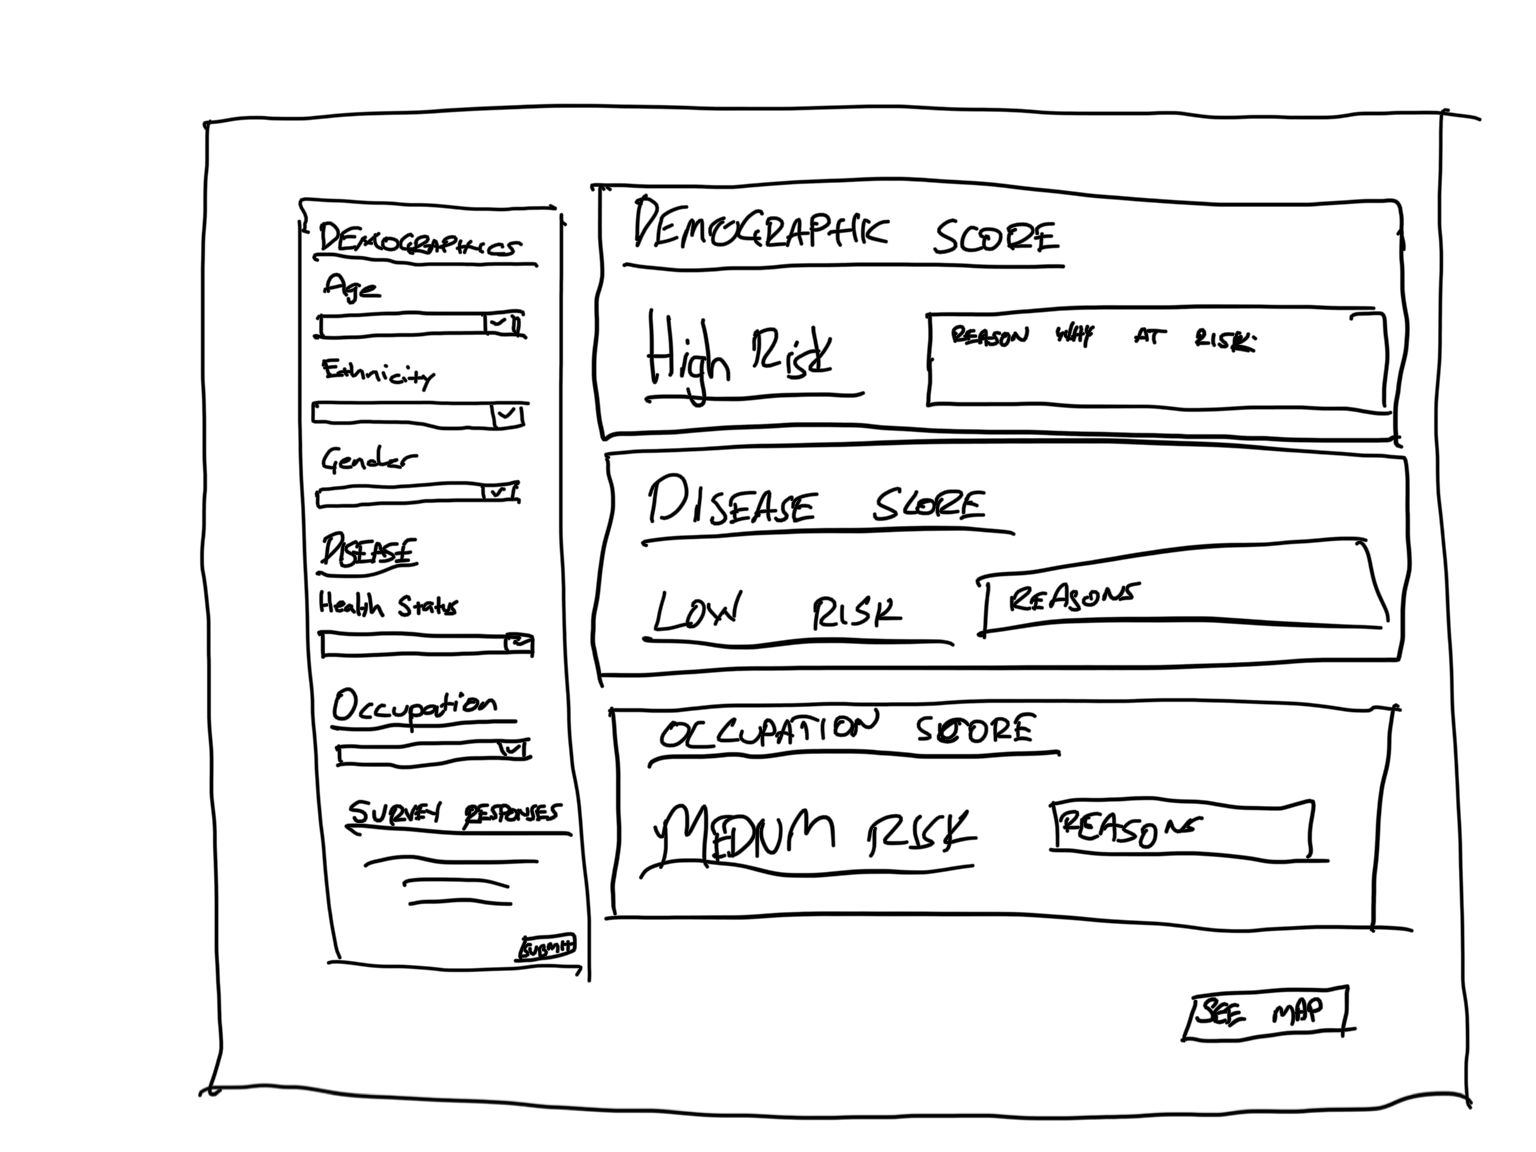 DEMOGRAPHICS
Age
Ethnicity
Gender
DISEASE
Health Status
Occupation
SURVEY RESPONSES
SUBMIT
DEMOGRAPHIC SCORE
High Risk
REASON WHY AT RISK:
DISEASE SCORE
LOW RISK
REASONS
OCCUPATION SCORE
MEDIUM RISK
REASONS
SEE MAP